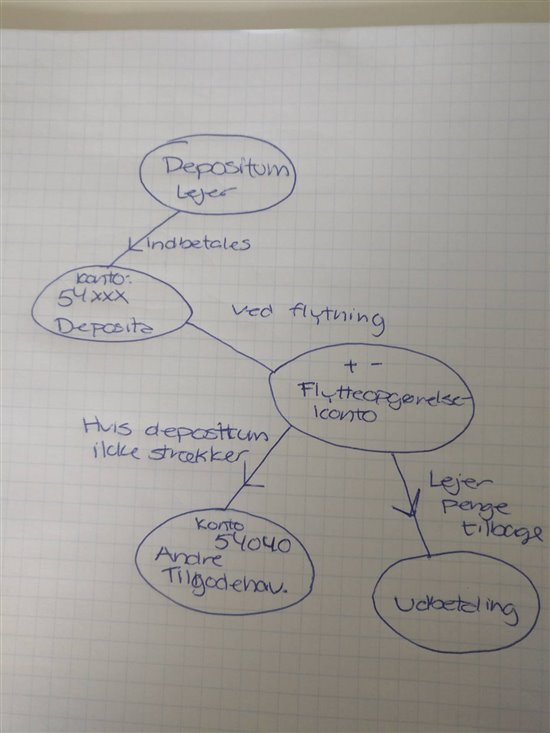 Depositum
Lejer
Indbetales
konto:
54xxx
Deposita
ved flytning
+ -
Flytteopgørelse-
konto
Hvis depositum
ikke strækker
Lejer
penge
tilbage
konto
54040
Andre
Tilgodehav.
Udbetaling